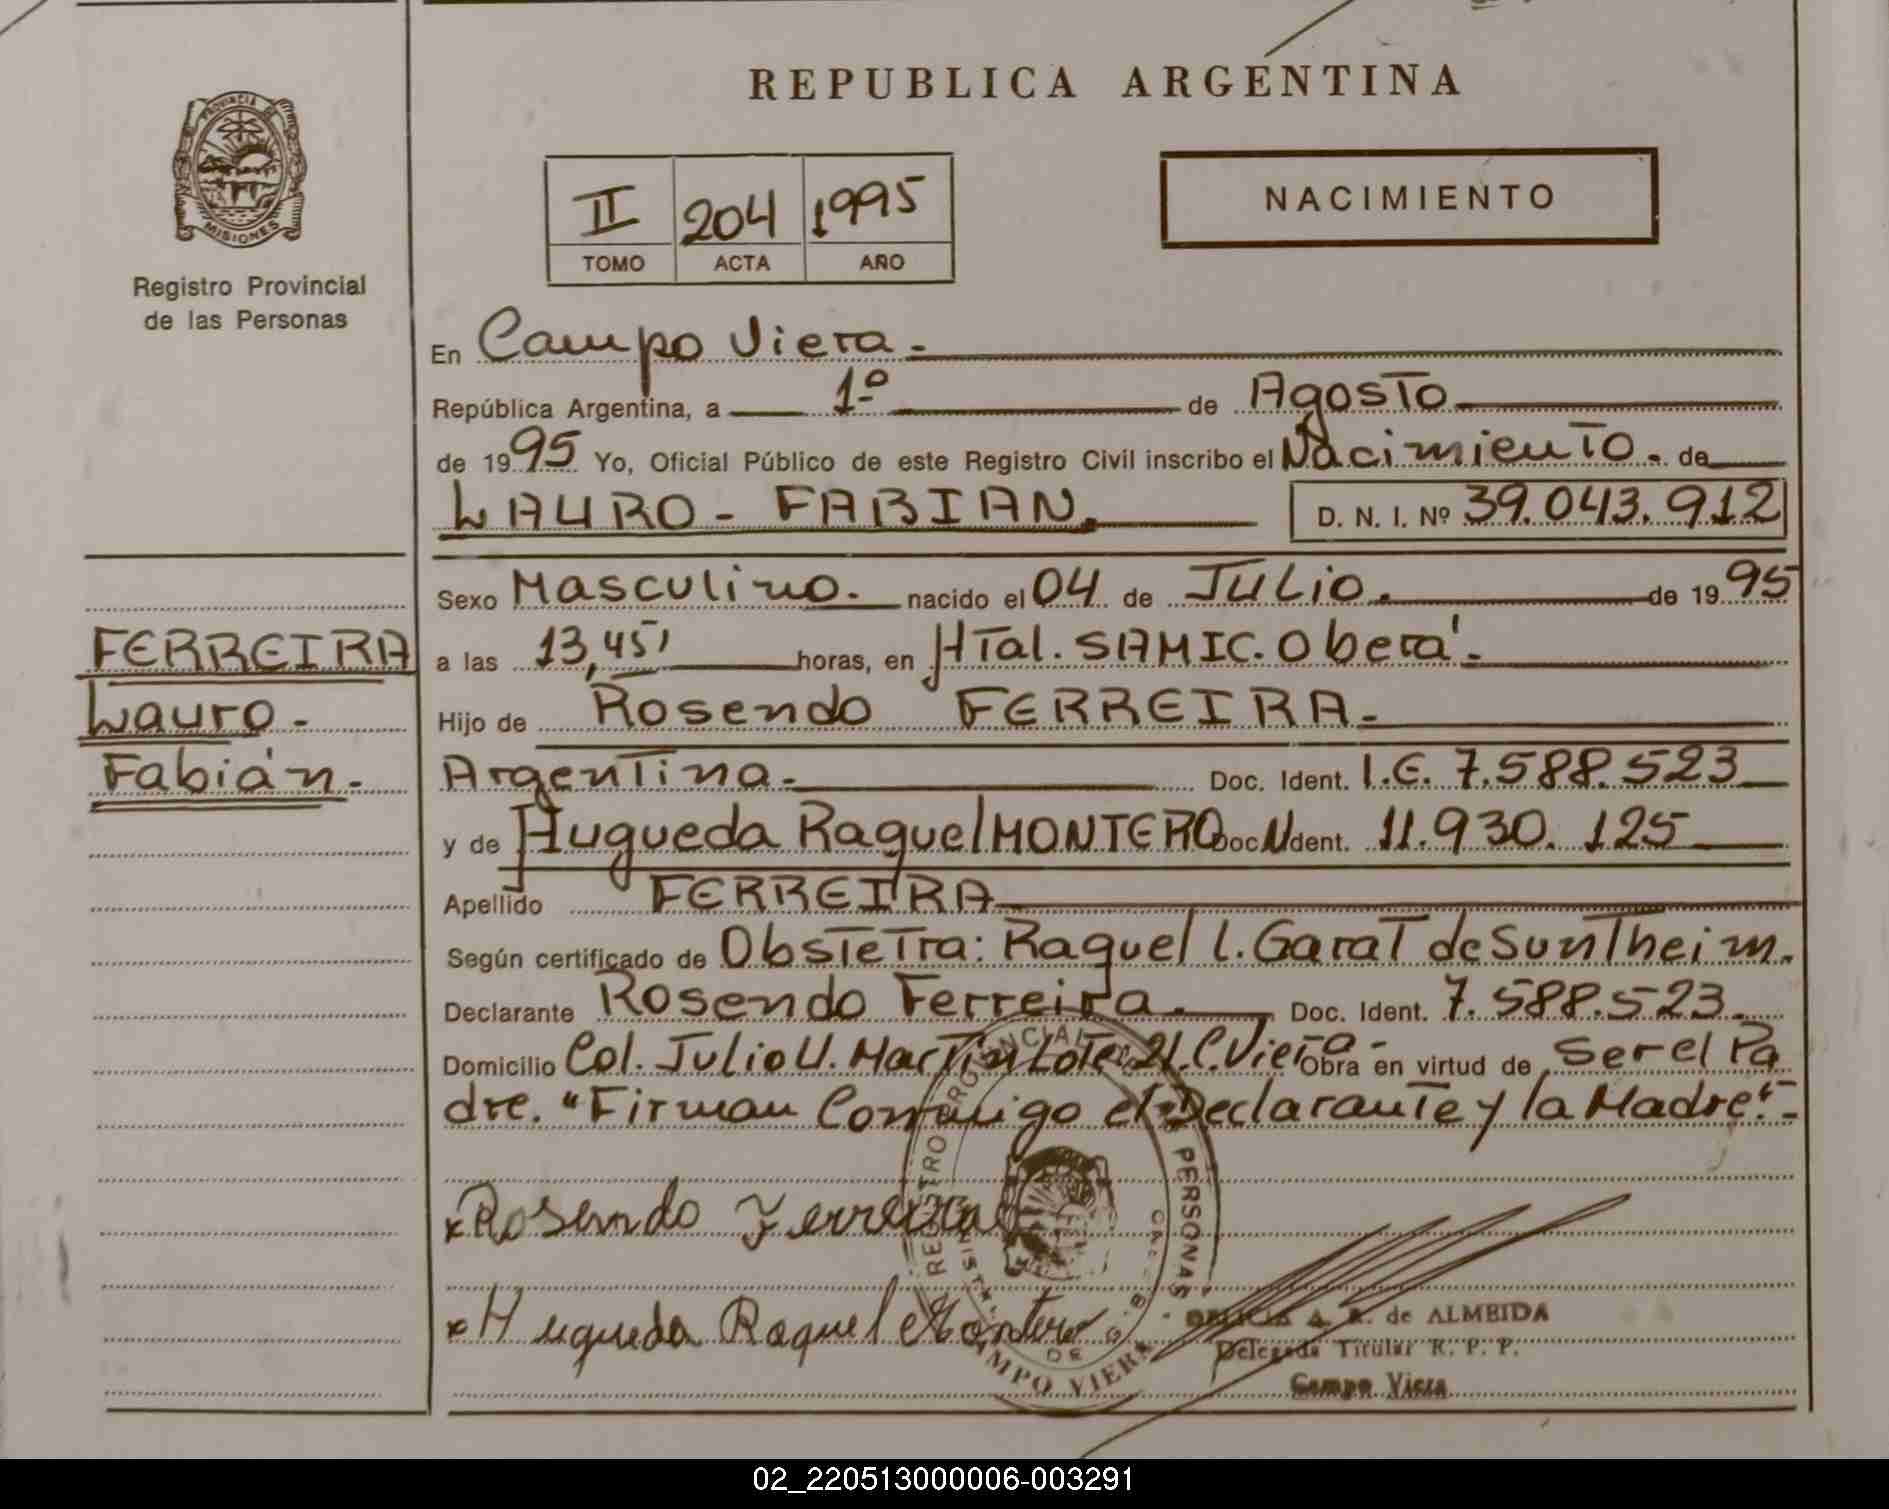 REPUBLICA ARGENTINA
PROVINCIA DE
MISIONES
Registro Provincial
de las Personas
II 204 1995
TOMO ACTA AÑO
NACIMIENTO
En Campo Viera.-
República Argentina, a 1º de Agosto
de 1995 Yo, Oficial Público de este Registro Civil inscribo el Nacimiento. de
LAURO - FABIAN. D. N. I. Nº 39.043.912
Sexo Masculino. nacido el 04 de JULIO. de 1995
FERREIRA
Lauro.-
Fabián.-
a las 13,45' horas, en HTal. SAMIC. Oberá.-
Hijo de Rosendo FERREIRA.-
Argentina.- Doc. Ident. I.E. 7.588.523
y de Hugueda Raquel MONTERO Doc. Ident. 11.930.125
Apellido FERREIRA
Según certificado de Obstetra: Raquel L. Garat de Suntheim.
Declarante Rosendo Ferreira. Doc. Ident. 7.588.523.
Domicilio Col. Julio U. Martin Lote 21. C. Viera - Obra en virtud de ser el Pa
dre. "Firman Conmigo el Declarante y la Madre".-
x Rosendo Ferreira
x Hugueda Raquel Montero
REGISTRO PROVINCIAL DE LAS PERSONAS
CAMPO VIERA
A. R. de ALMEIDA
Delegada Titular R. P. P.
Campo Viera
02_220513000006-003291